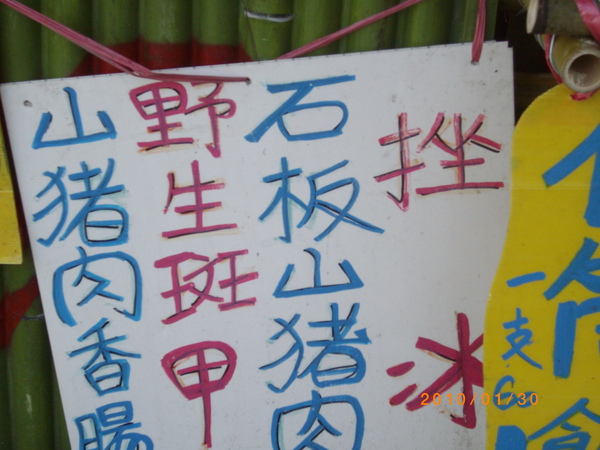 挫冰
石板山猪肉
野生斑甲
山猪肉香腸
筒
一支6
2010/01/30